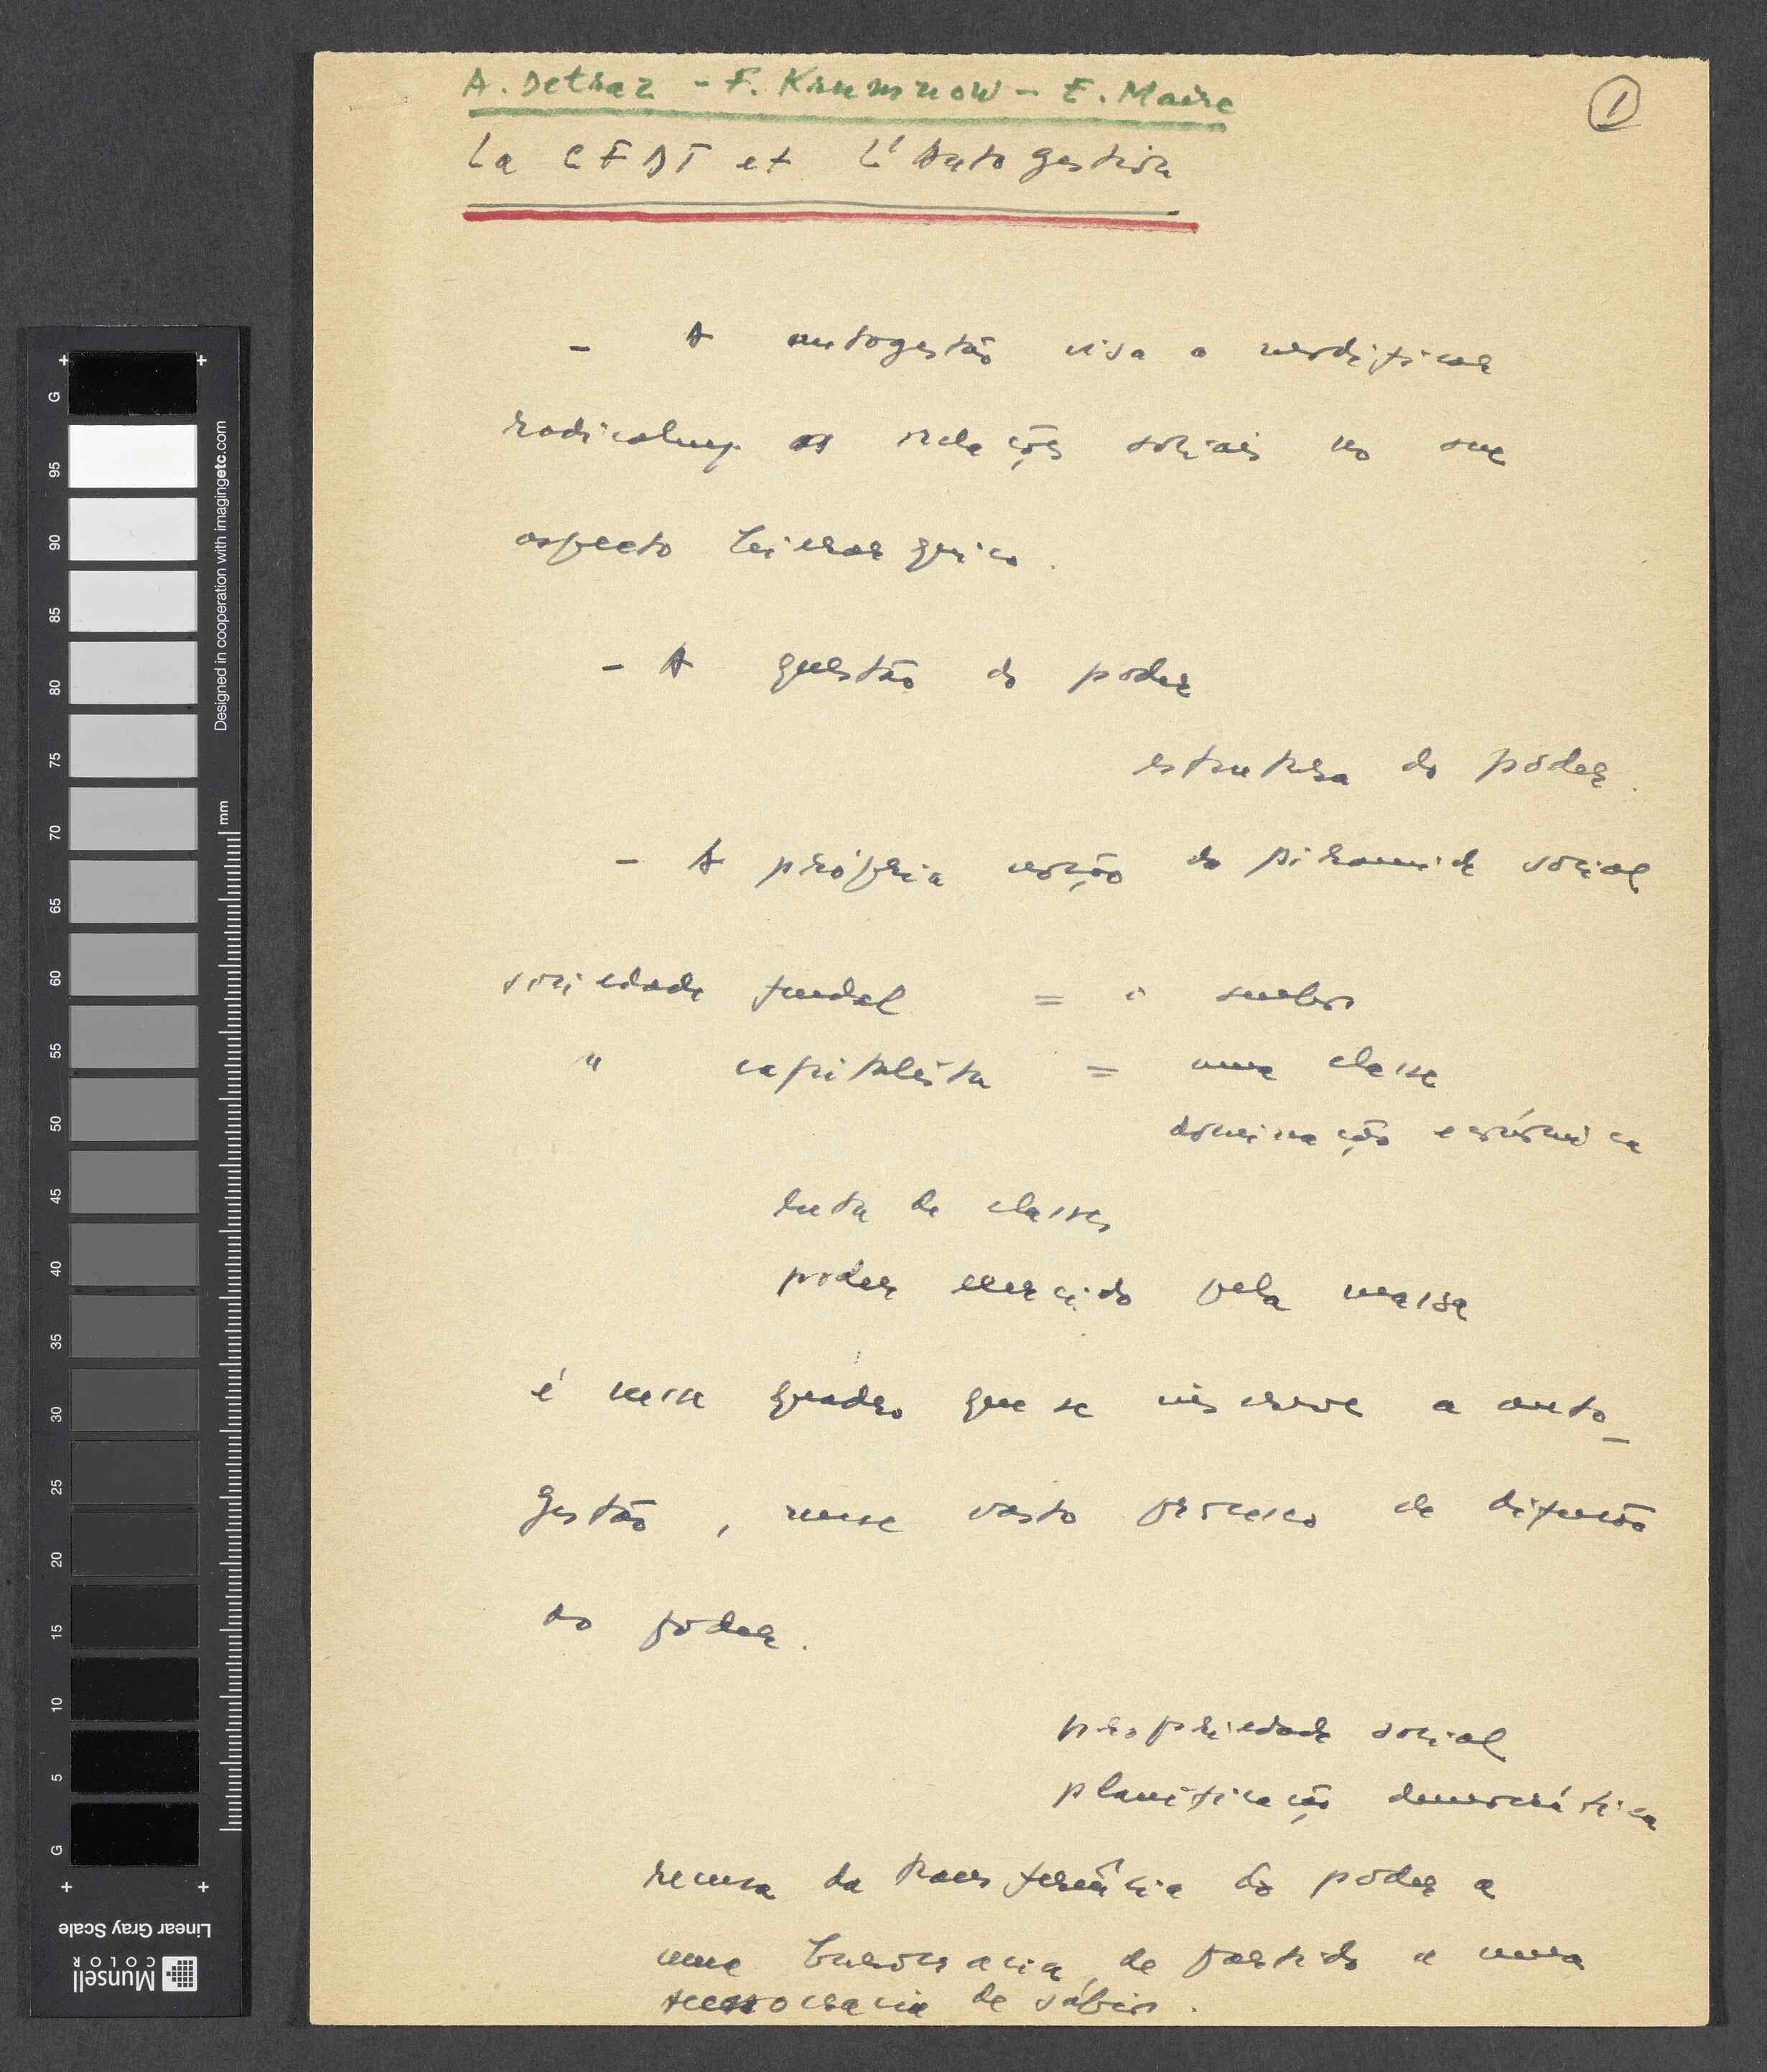 A. Detraz - F. Krumnow - E. Maire
1
La CFDT et L'Autogestion
- A autogestão visa a modificar
radicalmente as relações sociais no seu
aspecto hierarquico.
- A questão do poder
estrutura do poder.
- A própria noção da piramide social
sociedade feudal = o senhor
" capitalista = uma classe
dominação económica
luta de classes
poder exercido pela massa
é nesse quadro que se inscreve a auto_
gestão, nesse vasto processo de difusão
do poder.
propriedade social
planificação democrática
recusa da transferência do poder a
uma burocracia de partido e uma
tecnocracia de sábios.
G
95
90
85
80
75
70
65
60
55
50
45
40
35
30
25
20
15
10
5
G
mm
Designed in cooperation with imagingetc.com
Linear Gray Scale
Munsell
COLOR